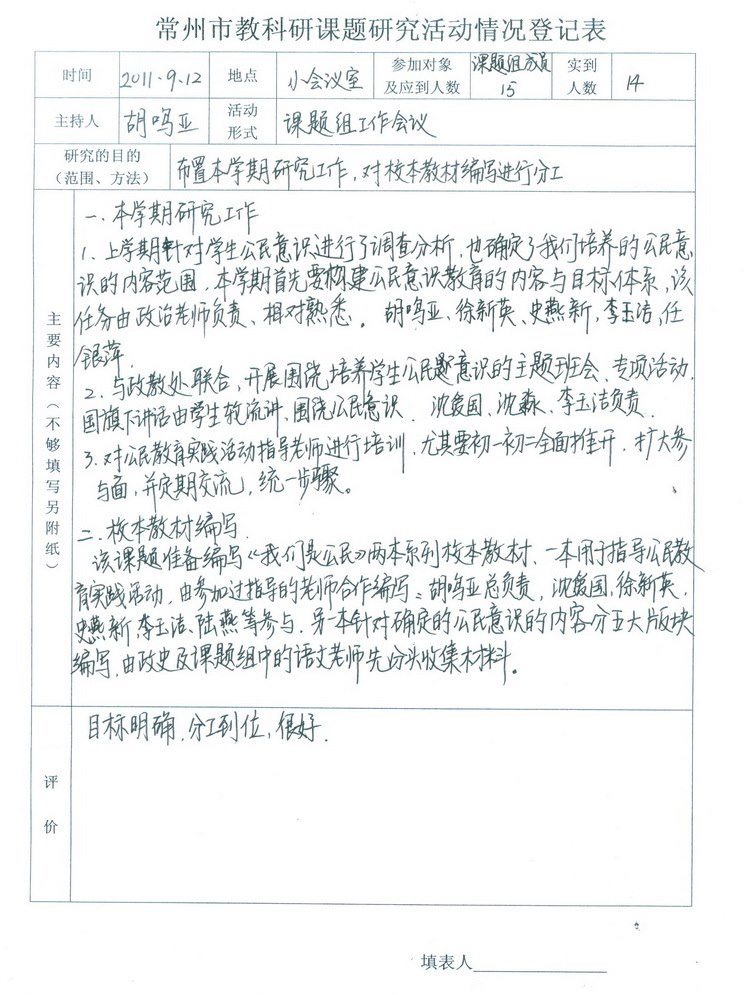 常州市教科研课题研究活动情况登记表
时间 2011.9.12 地点 小会议室 参加对象及应到人数 课题组成员 15 实到人数 14
主持人 胡鸣亚 活动形式 课题组工作会议
研究的目的（范围、方法） 布置本学期研究工作，对校本教材编写进行分工
主要内容（不够填写另附纸）
一、本学期研究工作
1、上学期针对学生公民意识进行了调查分析，也确定了我们培养的公民意
识的内容范围，本学期首先要构建公民意识教育的内容与目标体系，该
任务由政治老师负责、相对熟悉。 胡鸣亚、徐新英、史燕新，李玉洁，任
银萍．
2、与政教处联合，开展围绕培养学生公民意识的主题班会、专项活动．
国旗下讲话由学生轮流讲、围绕公民意识． 沈爱国、沈淼、李玉洁负责．
3、对公民教育实践活动指导老师进行培训、尤其要初一初二全面推开．扩大参
与面，并定期交流，统一步骤。
二、校本教材编写．
该课题准备编写《我们是公民》两本系列校本教材、一本用于指导公民教
育实践活动．由参加过指导的老师合作编写、胡鸣亚总负责，沈爱国，徐新英，
史燕新，李玉洁、陆燕等参与．另一本针对确定的公民意识的内容分五大版块
编写，由政史及课题组中的语文老师先分头收集材料。
评价
目标明确．分工到位，很好．
填表人